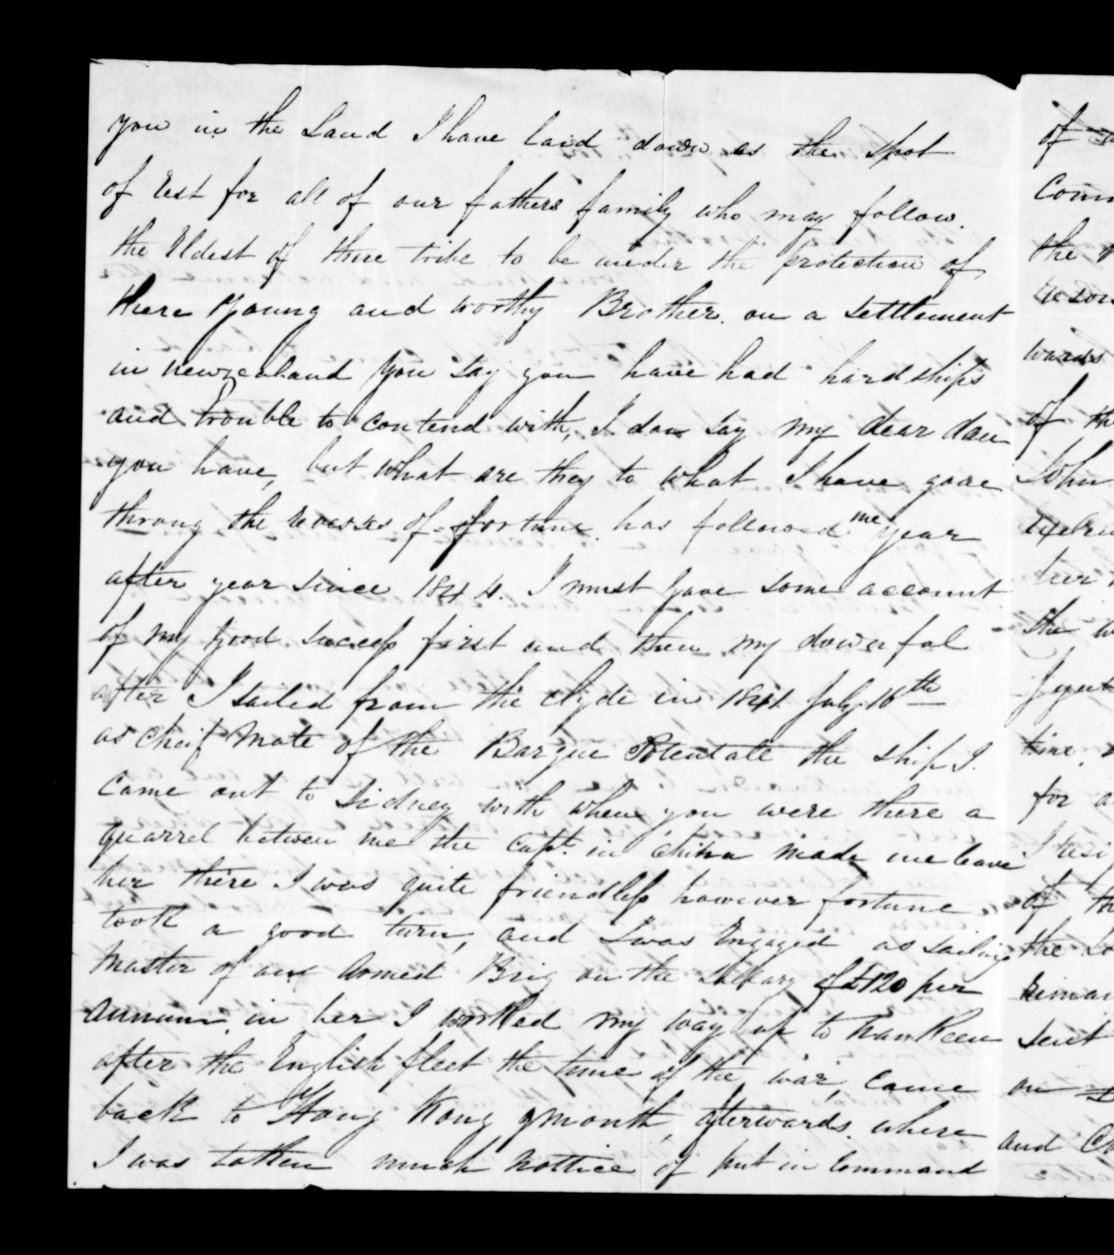 you in the Land I have laid down as the spot
of Rest for all of our fathers family who may follow.
the Eldest of there tribe to be under the protection of
there Young and worthy Brother. on a settlement
in newzealand you say you have had hardships
and trouble to contend with, I dau say my dear dau
you have, but what are they to what I have gone
throug the reverses of fortune. has followed me year
after year since 1844. I must gave some account
of my good success first and then my downfal
after I sailed from the Clyde in 1841 July 16th
as cheif Mate of the Barque Potentate the ship I.
Came out to Sidney with when you were there a
quarrel between me the Capt. in China made me leave
her there I was quite friendless however fortune
took a good turn, and I was Engaged as sailing
Master of an Armed Brig on the Sallary of £120 per
Annum. in her I worked my way up to Nankeen
after the English fleet the time of the war, came
back to Hong Kong 9 month, afterwards. where
I was tatken much nottice of put in Command
of
Com
the

wards
of th
John

her
the

time.
for a
I resi
of th
the
remai
sent
on
and Ch